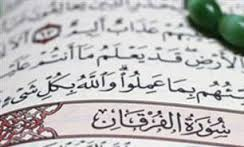 يبهم عذاب أليم ٦٣
الأرض قد يعلم ما أنتم عل
ئهم بما عملوا والله بكل شيء
سورة الفرقان